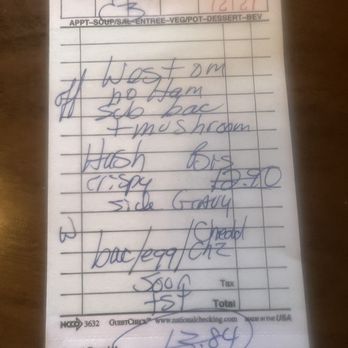 CB
APPT-SOUP/SAL-ENTREE-VEG/POT-DESSERT-BEV
West om
off no Ham
sub bac
+ mushroom
Hash Bis
crispy 12.90
side Gravy
W Chedd
bac/egg/chz
Sour
tst Tax
Total
3632 GUESTCHECK www.nationalchecking.com MADE IN THE USA
13.84